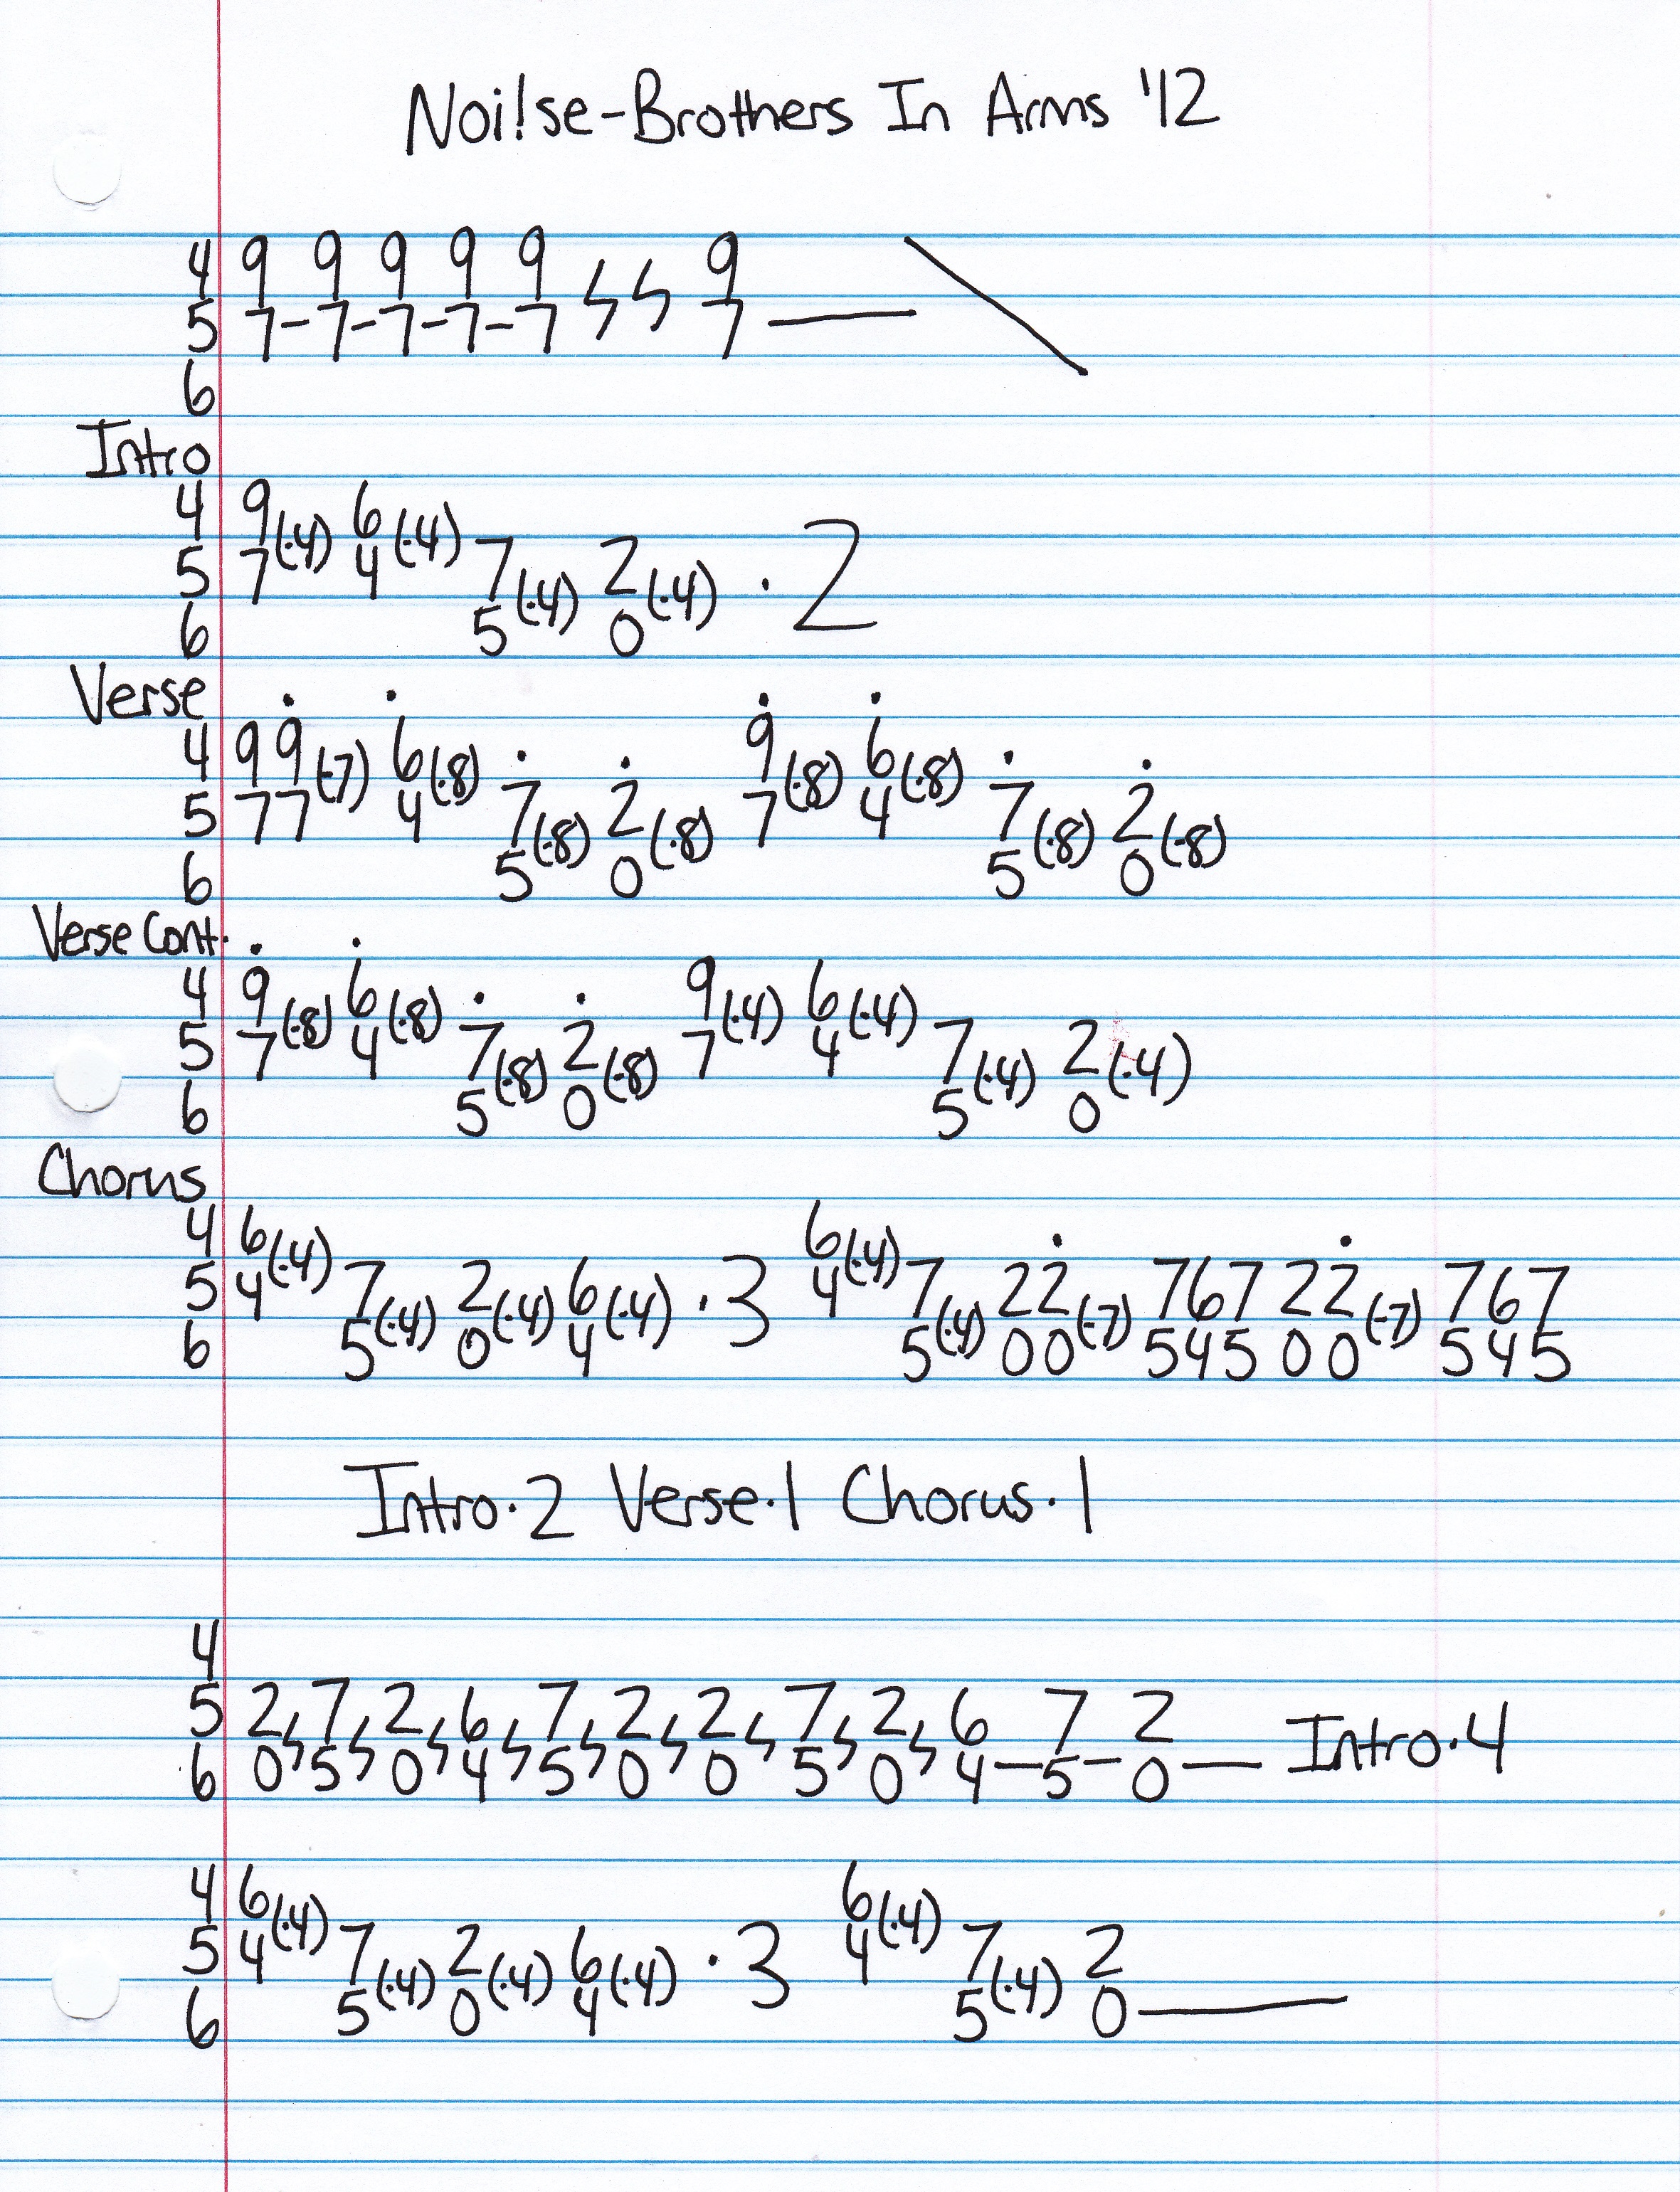 Noi!se-Brothers In Arms '12
4 9 9 9 9 9 ϟ ϟ 9
5 7-7-7-7-7 7 —— \
6
Intro
4 9(·4) 6(·4)
5 7 4 7(·4) 2(·4) ·2
6 5 0
Verse
4 9 9̇(·7) 6̇(·8) 9̇(·8) 6̇(·8)
5 7 7 4 7̇(·8) 2̇(·8) 7 4 7̇(·8) 2̇(·8)
6 5 0 5 0
Verse Cont.
4 9̇(·8) 6̇(·8) 9(·4) 6(·4)
5 7 4 7̇(·8) 2̇(·8) 7 4 7(·4) 2(·4)
6 5 0 5 0
Chorus
4 6(·4) 6(·4)
5 4 7(·4) 2(·4) 6(·4) ·3 4 7(·4) 2 2̇(·7) 7 6 7 2 2̇(·7) 7 6 7
6 5 0 4 5 0 0 5 4 5 0 0 5 4 5
Intro·2 Verse·1 Chorus·1
4
5 2ϟ7ϟ2ϟ6ϟ7ϟ2ϟ2ϟ7ϟ2ϟ6 7 2 Intro·4
6 0 5 0 4 5 0 0 5 0 4—5—0—
4 6(·4) 6(·4)
5 4 7(·4) 2(·4) 6(·4) ·3 4 7(·4) 2
6 5 0 4 5 0——